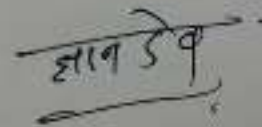 ज्ञान डेव